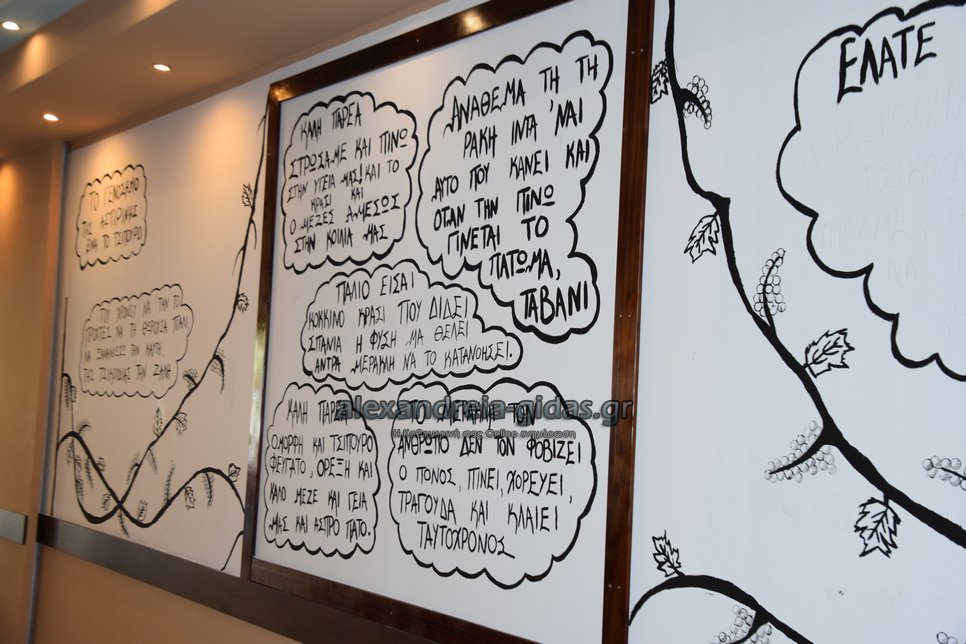 ΤΟ ΓΕΝΟΣΗΜΟ
ΤΗΣ ΑΣΠΙΡΙΝΗΣ
ΕΙΝΑΙ ΤΟ ΤΣΙΠΟΥΡΟ
ΤΟΥ ΧΡΟΝΟΥ ΝΑ ΤΑΝ ΤΟ
ΝΑ ΤΑ ΘΩΡΟΥΣΑ ΠΑΛΙ
ΝΑ ΞΑΝΑΖΙΩ ΤΗΝ ΚΑΨΗ
ΤΗΣ ΤΣΙΚΟΥΔΙΑΣ ΤΗΝ ΖΑΛΗ
ΚΑΛΗ ΠΑΡΕΑ
ΣΤΡΩΣΑΜΕ ΚΑΙ ΠΙΝΩ
ΣΤΗΝ ΥΓΕΙΑ ΜΑΣ! ΚΑΙ ΤΟ
ΚΡΑΣΙ ΚΑΙ
Ο ΜΕΖΕΣ ΑΜΕΣΩΣ
ΣΤΗΝ ΚΟΙΛΙΑ ΜΑΣ
ΑΝΑΘΕΜΑ ΤΗ ΤΗ
ΡΑΚΗ ΙΝΤΑ 'ΝΑΙ
ΑΥΤΟ ΠΟΥ ΚΑΝΕΙ ΚΑΙ
ΟΤΑΝ ΤΗΝ ΠΙΝΩ
ΓΙΝΕΤΑΙ ΤΟ
ΠΑΤΩΜΑ,
ΤΑΒΑΝΙ
ΠΑΛΙΟ ΕΙΣΑΙ
ΚΟΚΚΙΝΟ ΚΡΑΣΙ ΠΟΥ ΔΙΔΕΙ
ΣΠΑΝΙΑ Η ΦΥΣΗ ΜΑ ΘΕΛΕΙ
ΑΝΤΡΑ ΜΕΡΑΚΛΗ ΝΑ ΤΟ ΚΑΤΑΝΟΗΣΕΙ.
ΚΑΛΗ ΠΑΡΕΑ
ΟΜΟΡΦΗ ΚΑΙ ΤΣΙΠΟΥΡΟ
ΦΕΥΓΑΤΟ, ΟΡΕΞΗ ΚΑΙ
ΚΑΛΟ ΜΕΖΕ ΚΑΙ ΓΕΙΑ
ΜΑΣ ΚΑΙ ΑΣΠΡΟ ΠΑΤΟ.
ΤΟ ΜΕΡΑΚΛΗ ΤΟΝ
ΑΝΘΡΩΠΟ ΔΕΝ ΤΟΝ ΦΟΒΙΖΕΙ
Ο ΠΟΝΟΣ, ΠΙΝΕΙ, ΧΟΡΕΥΕΙ,
ΤΡΑΓΟΥΔΑ ΚΑΙ ΚΛΑΙΕΙ
ΤΑΥΤΟΧΡΟΝΟΣ
ΕΛΑΤΕ
alexandreia-gidas.gr
Η Καθημερινή σας Online ενημέρωση